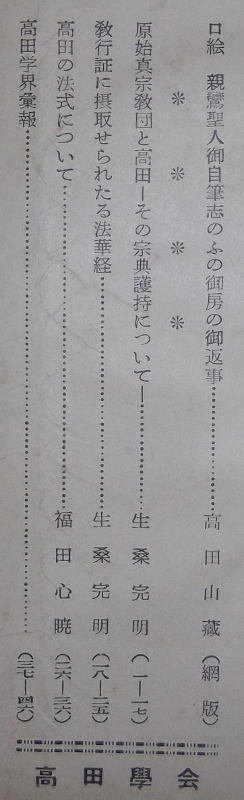 口絵 親鸞聖人御自筆志のふの御房の御返事……………高田山藏(網版)
＊ ＊ ＊ ＊
原始真宗教団と高田ーその宗典護持についてー……………生桑完明(一ー一七)
教行証に摂取せられたる法華経……………生桑完明(一八ー二五)
高田の法式について……………福田心暁(二六ー三六)
高田学界彙報……………(三七ー四六)
高田學会